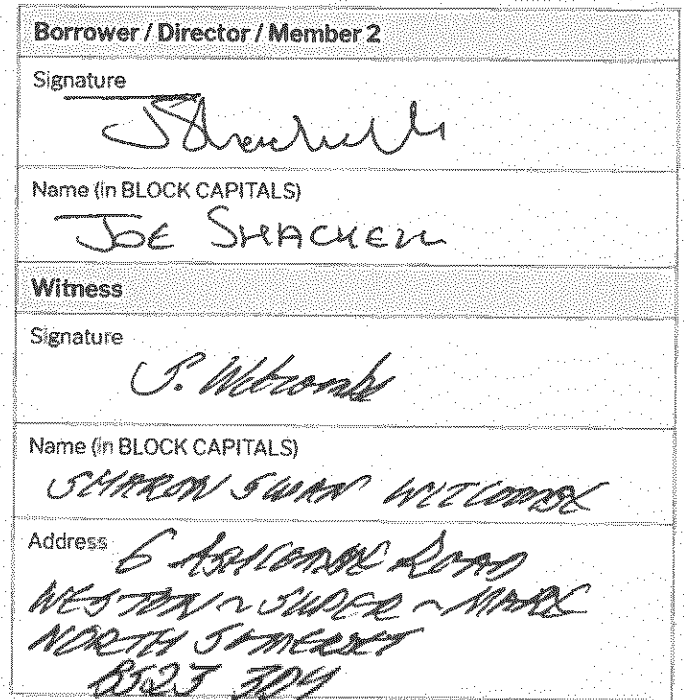 Borrower / Director / Member 2
Signature
JShackell
Name (in BLOCK CAPITALS)
JOE SHACKELL
Witness
Signature
S. Witcombe
Name (in BLOCK CAPITALS)
SHARON SWAN WITCOMBE
Address 6 ASHCOMBE ROAD
WESTON~SUPER~MARE
NORTH SOMERSET
BS23 3DY